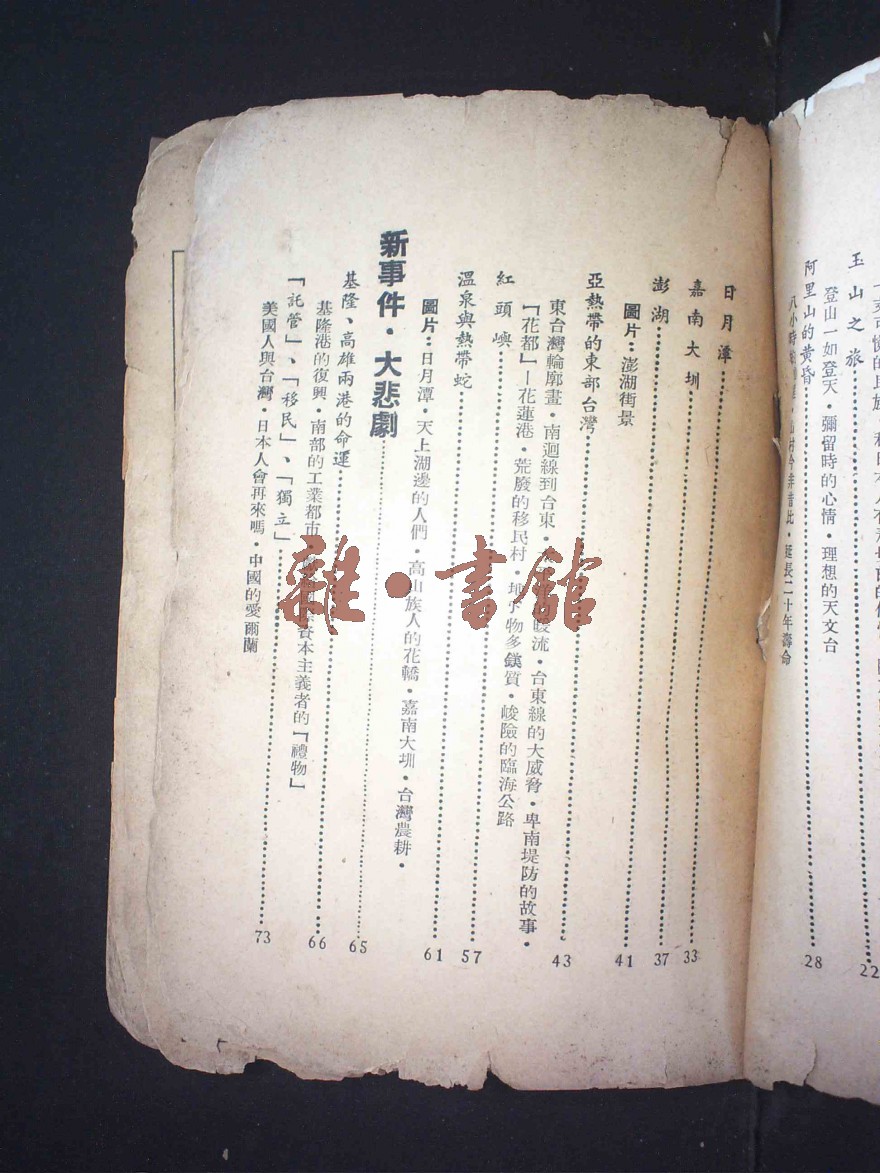 玉山之旅 22
登山一如登天·彌留時的心情·理想的天文台
阿里山的黄昏 28
八小時 山村今非昔比·延長二十年壽命
日月潭 33
嘉南大圳 37
澎湖 41
圖片：澎湖街景
亞熱帶的東部台灣 43
東台灣輪廓畫·南迴線到台東· 暖流·台東線的大威脅·卑南堤防的故事·
「花都」—花蓮港·荒廢的移民村·地下物多鎂質·峻險的臨海公路
紅頭嶼 57
溫泉與熱帶蛇 61
圖片：日月潭·天上湖邊的人們·高山族人的花轎·嘉南大圳·台灣農耕·
新事件·大悲劇 65
基隆、高雄兩港的命運 66
基隆港的復興·南部的工業都市· 資本主義者的「禮物」
「託管」、「移民」、「獨立」 73
美國人與台灣·日本人會再來嗎·中國的愛爾蘭
雜·書館